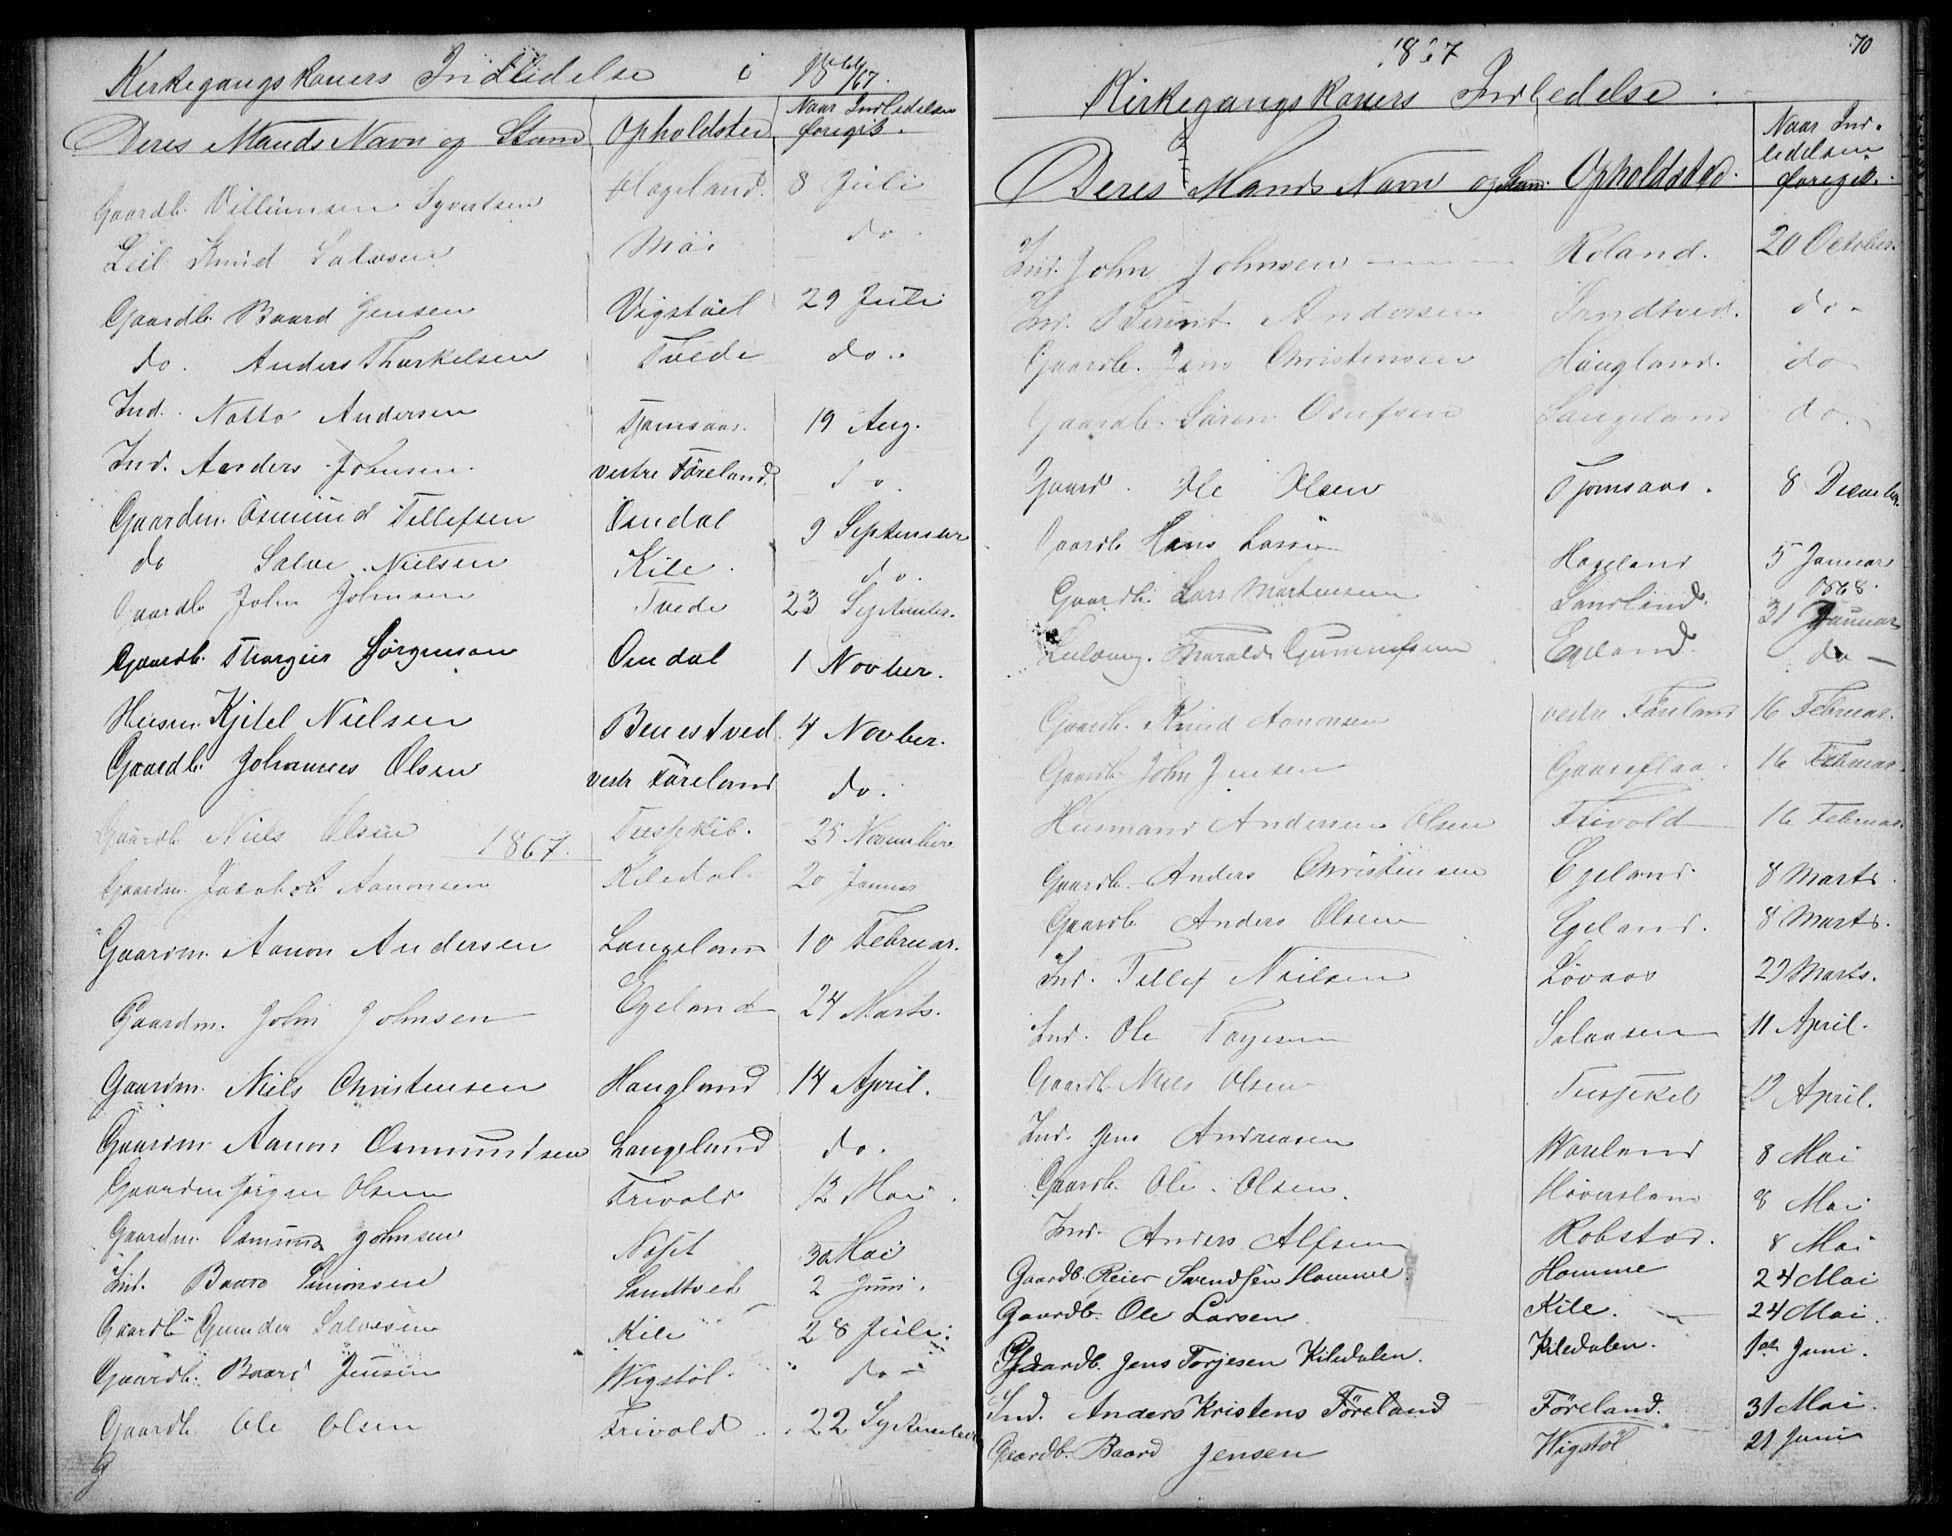 Kirkegangskoners Indledelse i 1866/67.
Deres Mands Navn og Stand Opholdsted Naar Indledelsen foregik.
Gaardb. Villumsen Syvertsen Hageland. 8 Juli
Leil Knud Salvesen do
Gaardb. Baard Jensen Vigstöel 29 Juli
do. Anders Tharkelsen Tvede do.
Ind. Notto Andersen Tjomsaas. 19 Aug.
Ind. Anders Johnsen. vestre Föreland. do.
Gaardm. Osmund Tellefsen Omdal 9 September
do Salve Nielsen Kile. do.
Gaardb. John Johnsen Tvede 23 September.
Gaardb. Thorgier Jörgensen Omdal 1 Novber.
Husm. Kjitel Nielsen Benestved. 4 Novber.
Gaardb. Johannes Olsen vestr Föreland do.
Gaardb Niels Olsen 25 November
1867.
Gaardm. Jacob Aanonsen Kiledal. 20 Januar
Gaardm. Aanon Andersen Langeland 10 Februar.
Gaardm. John Johnsen Egeland 24 Marts.
Gaardm. Niels Christensen Haugland 14 April.
Gaardm Aanon Osmundsen Langeland do.
Gaardm Jörgen Olsen Trivold 12 Mai.
Gaardm. Osmund Johnsen 30 Mai
Ind. Baard Simonsen Sandtved 2 Juni.
Gaardb. Gunder Salvesen Kile 28 Juli.
Gaardb. Baard Jensen Wigstöl. do
Gaardb. Ole Olsen Trivold. 22 September
G
1867
70
Kirkegangskoners Indledelse.
Deres Mands Navn og Stand. Opholdsted. Naar Indledelsen foregik.
Ind. John Johnsen Roland. 20 October.
Ind. Berint Andersen Sandtved. do.
Gaardb. Jens Christensen Haugland. do
Gaardb. Sören Osufsen Langeland do.
Gaard. Ole Olsen Tjomsaas. 8 December.
Gaardb Hans Hageland 5 Januar 1868.
Gaardb Lars Mortensen 31 Januar
Tharald Gunnufsen Egeland. do
Gaardb. Knud Aanonsen vestre 16 Februar.
Gaardb. John Jensen Gaaseflaa. 16 Februar.
Husmand Andersen Olsen Trivold 16 Februar
Gaardb. Anders Christensen Egeland. 8 Marts.
Gaardb Anders Olsen Egeland. 8 Marts.
Ind. Tellef Nielsen Lövaas 29 Marts.
Ind. Ole 11 April.
Gaardb. Niels Olsen April.
Ind. Jens Andreasen 8 Mai
Gaardb. Ole Olsen. Höversland 8 Mai
Ind. Anders Alfsen Robstad. 8 Mai
Gaardb. Reier Svendsen Homme. Homme 24 Mai
Gaardb. Ole Larsen. Kile. 24 Mai.
Gaardb. Jens Torjesen Kiledalen. Kiledalen. 1ste Juni.
Ind. Anders Kristens Föreland Föreland. 31 Mai.
Gaardb. Baard Jensen Wigstöl 21 Juni